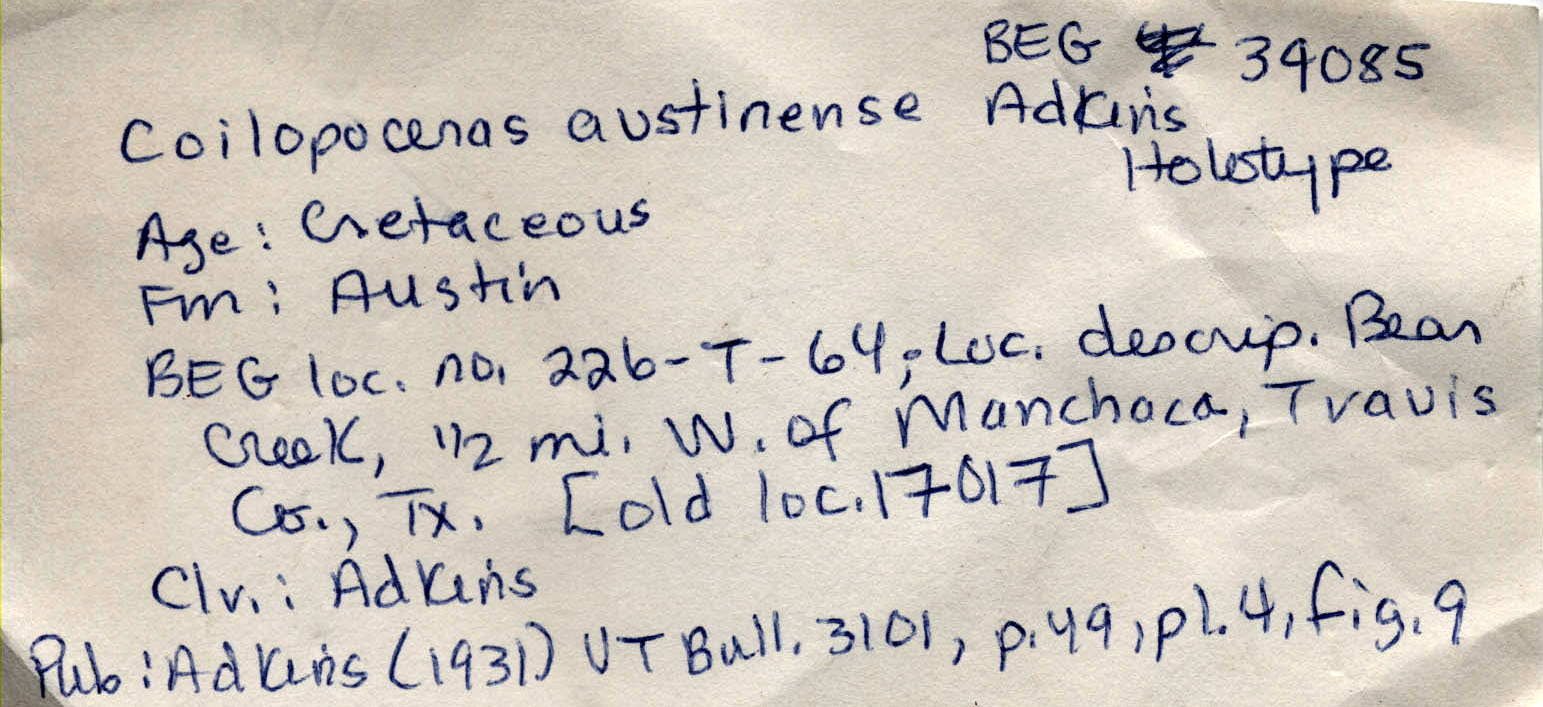 BEG 39085
Coilopoceras austinense Adkins
Holotype
Age: Cretaceous
Fm: Austin
BEG loc. no. 226-T-64; Loc. descrip. Bear
Creek, 1/2 mi. W. of Manchaca, Travis
Co., Tx. [old loc. 17017]
Clr.: Adkins
Pub: Adkins (1931) UT Bull. 3101, p. 49, pl. 4, fig. 9